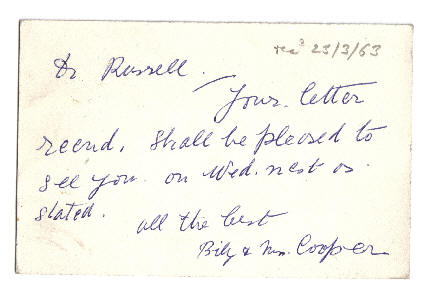 recd 23/3/63
Dr Russell.
Your letter
recend. Shall be pleased to
see you on Wed. nest as
stated.
all the best
Billy & Mrs. Cooper